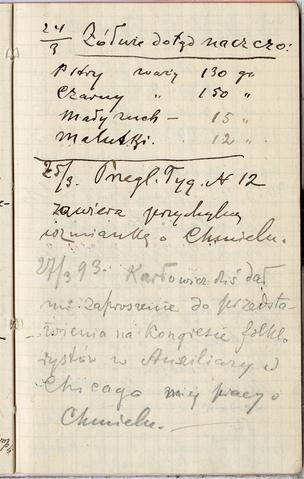 24/3 Żółwie dotąd naczczo:
Pstry waży 130 gr.
Czarny " 150 "
Mały ruch – 15 "
Malutki. " 12 "
25/3. Przegl. Tyg. N 12
zawiera przychylną
wzmiankę o Chmielu.
27/3 93. Karłowicz dziś dał
mi zaproszenie do przedsta-
wienia na Kongresie folklo-
rystów w Auxiliary w
Chicago mej pracy o
Chmielu. –